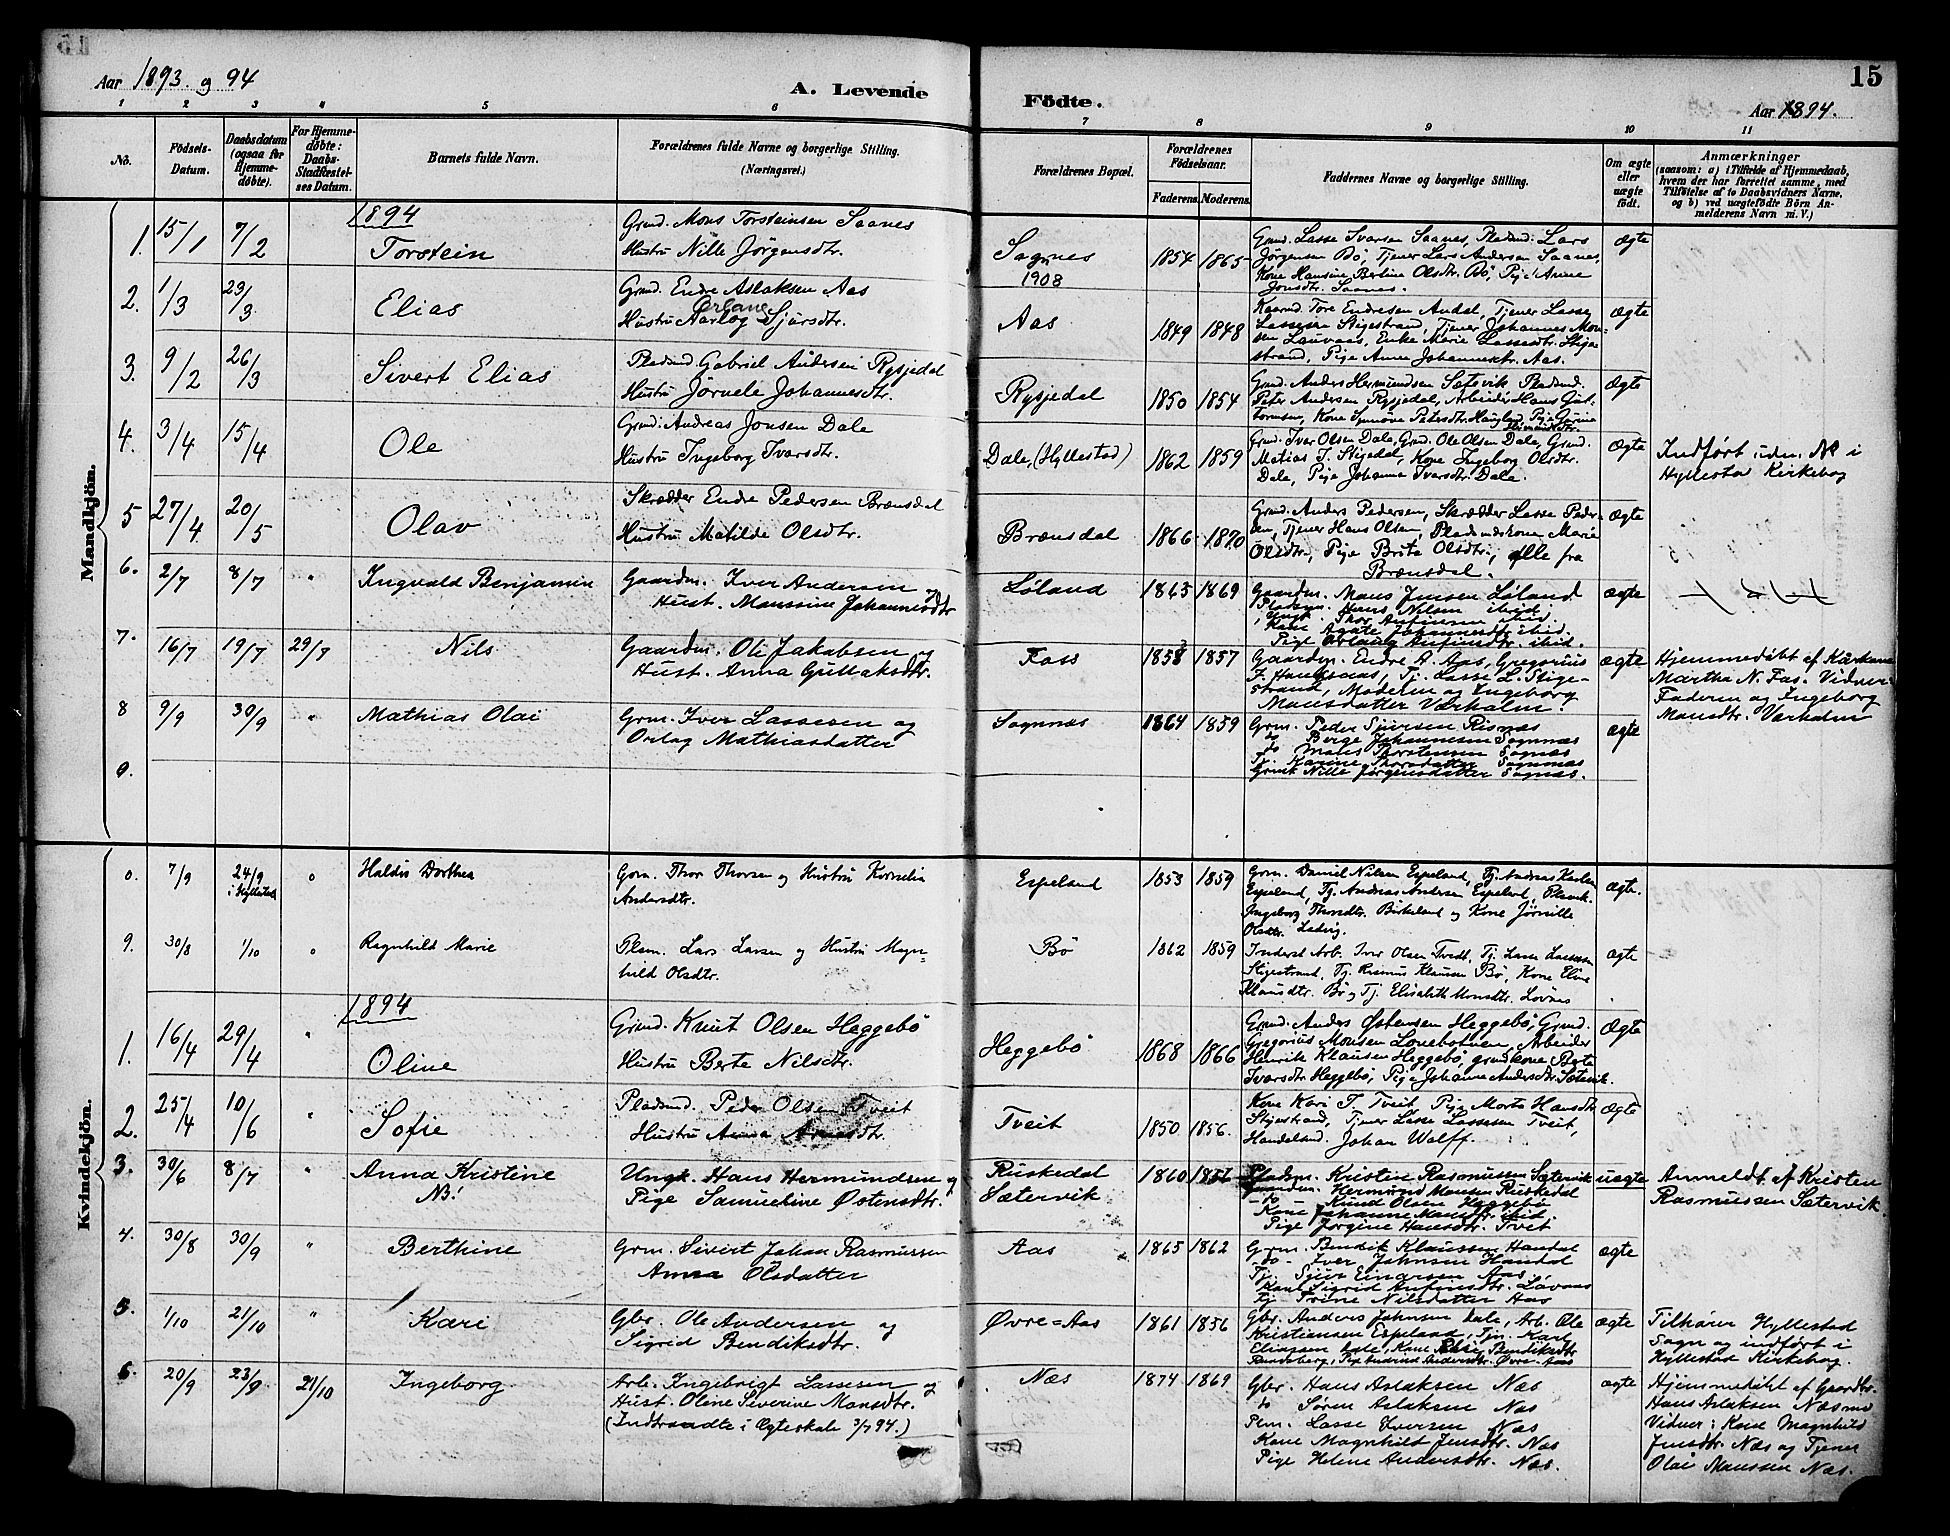 Aar 1893. og 94
A. Levende
Födte.
15
Aar 1894.
1 2 3 4 5 6 7 8 9 10 11
No.
Födsels-
Datum.
Daabsdatum
(ogsaa for
Hjemme-
döbte).
For Hjemme-
döbte:
Daabs-
Stadfæstel-
ses Datum.
Barnets fulde Navn.
Forældrenes fulde Navne og borgerlige Stilling.
(Næringsvei.)
Forældrenes Bopæl.
Forældrenes
Födselsaar.
Faderens. Moderens.
Faddernes Navne og borgerlige Stilling.
Om ægte
eller
uægte
födt.
Anmærkninger
(saasom: a) i Tilfælde af Hjemmedaab,
hvem der har forrettet samme, med
Tilföielse af to Daabsvidners Navne,
og b) ved uægtefödte Börn An-
melderens Navn m. V.)
Mandkjön.
1894
1. 15/1 7/2 Torstein
Grmd. Mons Torsteinsen Saanes
Hustru Nille Jörgensdtr.
Sognes
1908
1854 1865
Grmd. Lasse Ivarsen Saanes, Pladsmd. Lars
Jörgensen Bö, Tjener Lars Andersen Saanes,
Kone Hansine Bertine Olsdtr. Bö, Pige Anne
Jonsdtr. Saanes.
Ægte
2. 1/3 23/3 Elias
Grmd. Endre Aslaksen Aas
Hustru Aarlog Sjursdtr.
Aas
1849 1848
Kaarmd. Tore Endresen Andal, Tjener Lasse
Lassesen Stigestrand, Tjener Johannes Mon-
sen Lauvaas, Enke Marie Lassesdtr. Stige
strand, Pige Anne Johannesdtr. Aas.
Ægte
3. 9/2 26/3 Sivert Elias
Pladsmd. Gabriel Andersen Rysjedal
Hustru Jörnele Johannesdtr.
Rysjedal
1850 1854
Grmd. Anders Hermundsen Sætevik Pladsmd.
Peter Andersen Rysjedal, Arbeider Hans Gut-
tormsen, Kone Synnöve Petersdtr. Haugland, Pige
Ægte
4. 3/4 15/4 Ole
Grmd. Andreas Jonsen Dale
Hustru Ingeborg Ivarsdtr.
Dale, (Hyllestad)
1862 1859
Grmd. Iver Olsen Dale, Grmd. Ole Olsen Dale, Grmd.
Matias J. Stigedal, Kone Ingeborg Olsdtr.
Dale, Pige Johanna Ivarsdtr. Dale.
Ægte
Indført uden № i
Hyllestad Kirkebog
5 27/4 20/5 Olav
Skrædder Endre Pedersen Brænsdal
Hustru Matilde Olsdtr.
Brænsdal
1866 1870
Grmd. Anders Pedersen, Skrædder Lasse Peder-
sen, Tjener Hans Olsen, Pladsmdskone Marie
Olsdtr, Pige Brita Olsdtr, alle fra
Brænsdal.
Ægte
6. 2/7 8/7 " Ingvald Benjamin
Gaardm. Iver Andersen og
Hust. Monssine Johannesdtr
Løland
1865 1869
Gaardm. Mons Jensen Løland
Pladsm. Hans Nilsen ibid.
Ungk. Thor Anfinsen ibid.
Kone Agate Johannesdtr. ibid.
Pige Anfinsdtr. ibid.
ægte
7. 16/7 19/7 29/7 Nils
Gaardm. Ole Jakobsen og
Hust. Anna Gullaksdtr.
Fass
1858 1857
Gaardm. Endre A. Aas, Gregorius
Tj. Lasse L. Stige-
strand, Madelin og Ingeborg
Monsdatter Værholm.
ægte
Hjemmedøbt af Kårkone
Martha N. Fas. Vidner:
Faderen og Ingeborg
Monsdtr. Værholm
8 9/9 30/9 " Mathias Olai
Grm. Iver Lassesen og
Orlog Mathiasdatter
Sognnæs
1864 1859
Grm. Peder Sjursen Risnæs
do Berge Johannessen Sognnæs
do Mons Thorstensen Sognæs
Tj. Karine Thorsdatter Sognnæs
Grmk Nille Jørgensdatter Sognæs.
ægte
9.
Kvindekjön.
0. 7/9 24/9 i Hyllestad " Haldis Dorthea
Grm. Thor Thorsen og Hustru Kornelia
Andersdtr.
Espeland
1853 1859
Grm. Daniel Nilsen Espeland, Tj. Andreas
Espeland, Tj. Andreas Andersen Espeland,
Ingeborg Thorsdtr. Birkeland og Kone Jørnille
Olsdtr. Ladvig.
ægte.
9. 30/8 1/10 " Ragnhild Marie
Plsm. Lars Larsen og Hustru Magn-
hild Olsdtr.
Bö
1862 1859
Inderst Arb. Iver Olsen Tvedt, Tj. Lasse Lassesen
Stigestrand, Tj. Rasmus Klausen Bö, Kone Eline
Klausdtr. Bö og Tj. Elisabeth Monsdtr. Lovnes
ægte
1894
1. 16/4 29/4 " Oline
Grmd. Knut Olsen Heggebö
Hustru Berte Nilsdtr.
Heggebö
1868 1866
Grmd. Anders Østensen Heggebö, Grmd.
Gregorius Monsen Lonebotnen, Arbeider
Henrik Klausen Heggebö, grmdkone Berte
Ivarsdtr Heggebö, Pige Johanne Andersdtr. Sætevik.
Ægte
2. 25/4 10/6 " Sofie
Pladsmd. Peder Olsen Tveit
Hustru Anna
Tveit
1850 1856.
Kone Kari J. Tveit, Pige Marta Hansdtr
Stigestrand, Tjener Lasse Lassesen Tveit,
Handelsmd. Johan Wolff.
Ægte
3. 30/6 8/7 " Anna Kristine
NB!
Ungk. Hans Hermundsen og
Pige Samueline Østensdtr.
Ruskedal
Sætervik
1860
Pladsm. Kristen Rasmussen Sætervik
Gaardm. Hermund Monsen Ruskedal
do Knud Olsen Heggebø
Kone Johanne Monsdtr. ibid.
Pige Jørgine Hansdtr. Tveit
uægte
Anmeldt af Kristen
Rasmussen Sætervik.
4. 30/8 30/9 " Berthine
Grm. Sivert Johan Rasmussen
Anna Olsdatter
Aas
1865 1862
Grm. Bendik Klaussen Handal
do - Iver Johnsen Handal
Tj. Sjur Einarsen Aas
Kone Sigrid Anfinsdtr. Løvaas
Tj Trine Nilsdatter Aas
ægte
5. 1/10 21/10 " Kari
Gbr. Ole Andersen og
Sigrid Bendiksdtr.
Øvre-Aas
1861 1856
Gbr. Anders Johnsen Dale, Arb. Ole
Kristiansen Espeland, Tjn. Karl
Eliassen Dale, Kone Elsie Bendiksdtr
Andersdtr. Øvre-Aas
ægte
Tilhører Hyllestad
Sogn og indført i
Hyllestad Kirkebog.
6. 20/9 23/9 21/10 Ingeborg.
Arb. Ingebrigt Lassesen og
Hust. Oline Severine Monsdtr.
(Indtraadte i Ægteskab 3/7 94.)
Næs
1874 1869
Gbr. Hans Aslaksen Næs
do Søren Aslaksen Næs
Plm. Lasse Iversen Næs
Kone Magnhild Jensdtr. Næs
Pige Helene Andersdtr. Næs.
ægte
Hjemmedøbt af Gaardbr.
Hans Aslaksen Næs med
Vidner: Kone Magnhild
Jensdtr. Næs og Tjener
Olai Monssen Næs.